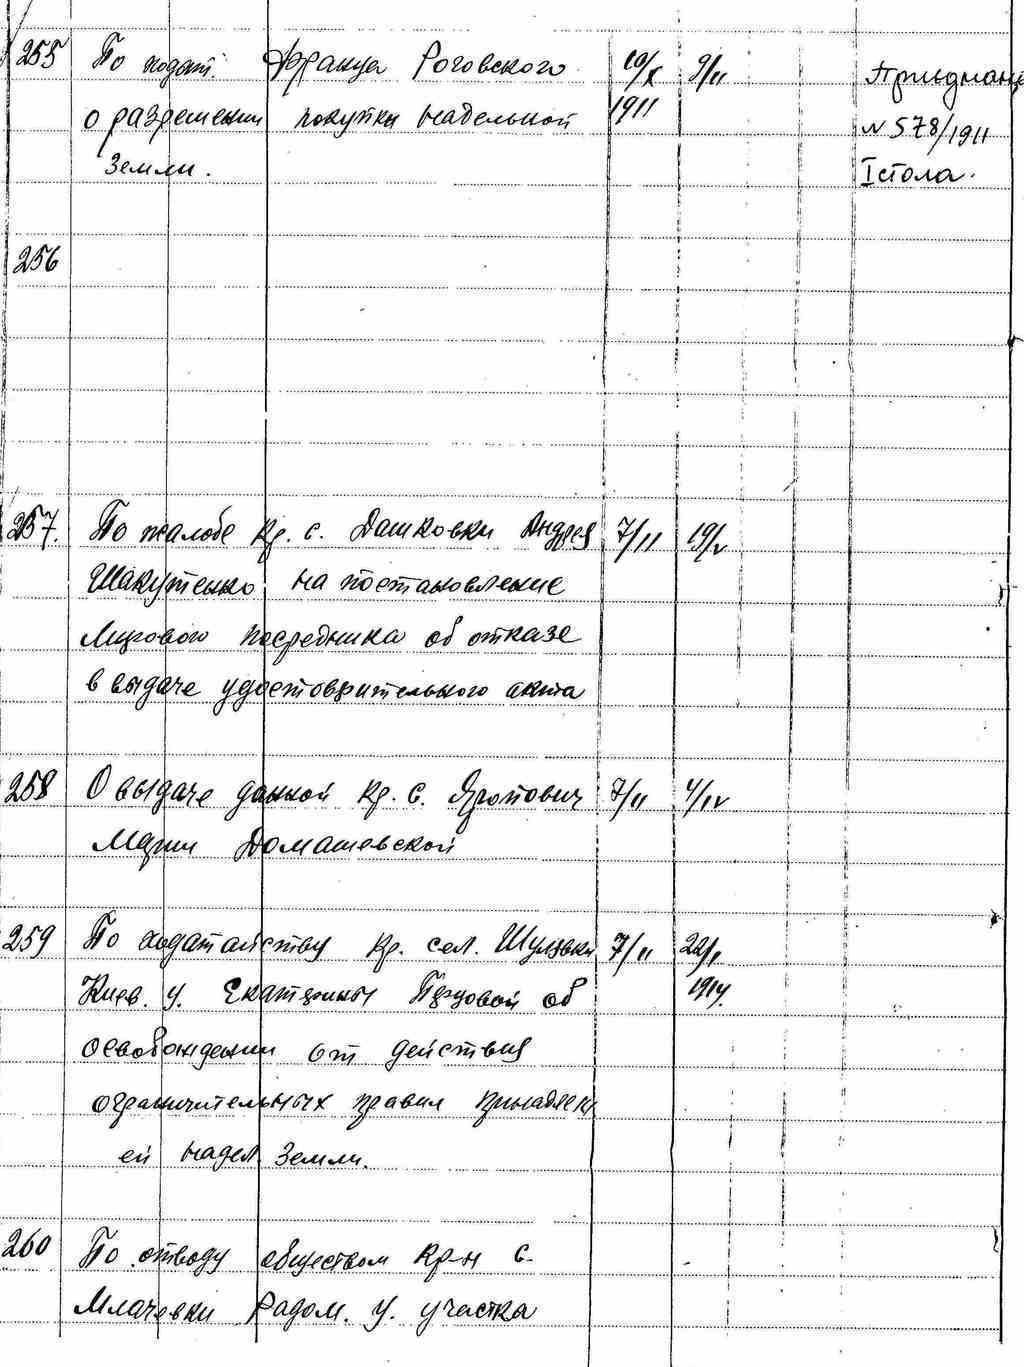 255 По ходат. Франца Роговского 19/X 9/II
о разрешении покупки надельной 1911
земли.
Приєднано
N 578/1911
I стола.
256
257. По жалобе кр. с. Дашковки Андрея 7/II 19/V
Шакутенко на постановление
Мирового посредника об отказе
в выдаче удостоверительного акта
258 О выдаче данной кр. с. Яропович 7/II 4/IV
Марии Домашевской
259 По ходатайству кр. сел. Шулявки 7/II
Киев. у. Екатерины об 1914.
освобождении от действия
ограничительных правил принадлеж
ей надел. земли.
260 По отводу обществом кр-н с.
Млачевки Радом. у. участка